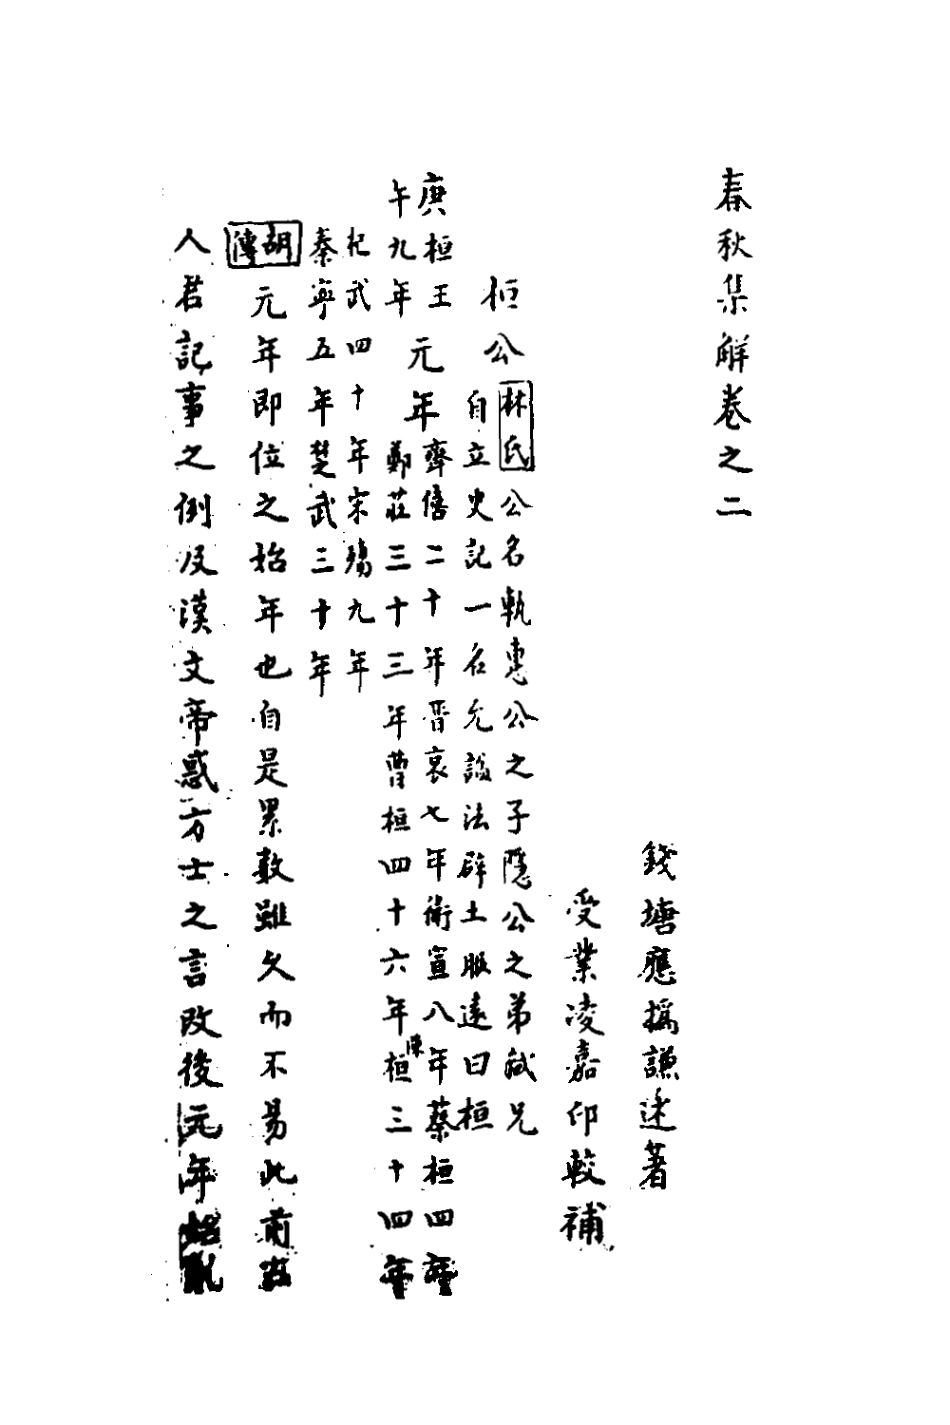 春秋集解卷之二
錢塘應撝謙述著
受業凌嘉印較補
桓公
林氏公名軌惠公之子隱公之弟弒兄
自立史記一名允謚法辟土服遠曰桓
庚午
桓王九年
元年
齊僖二十年晉哀七年衛宣八年蔡桓四年
鄭莊三十三年曹桓四十六年陳桓三十四年
杞武四十年宋殤九年
秦寧五年楚武三十年
胡傳元年即位之始年也自是累數雖久而不易此前古
人君記事之例及漢文帝惑方士之言改後元年始亂